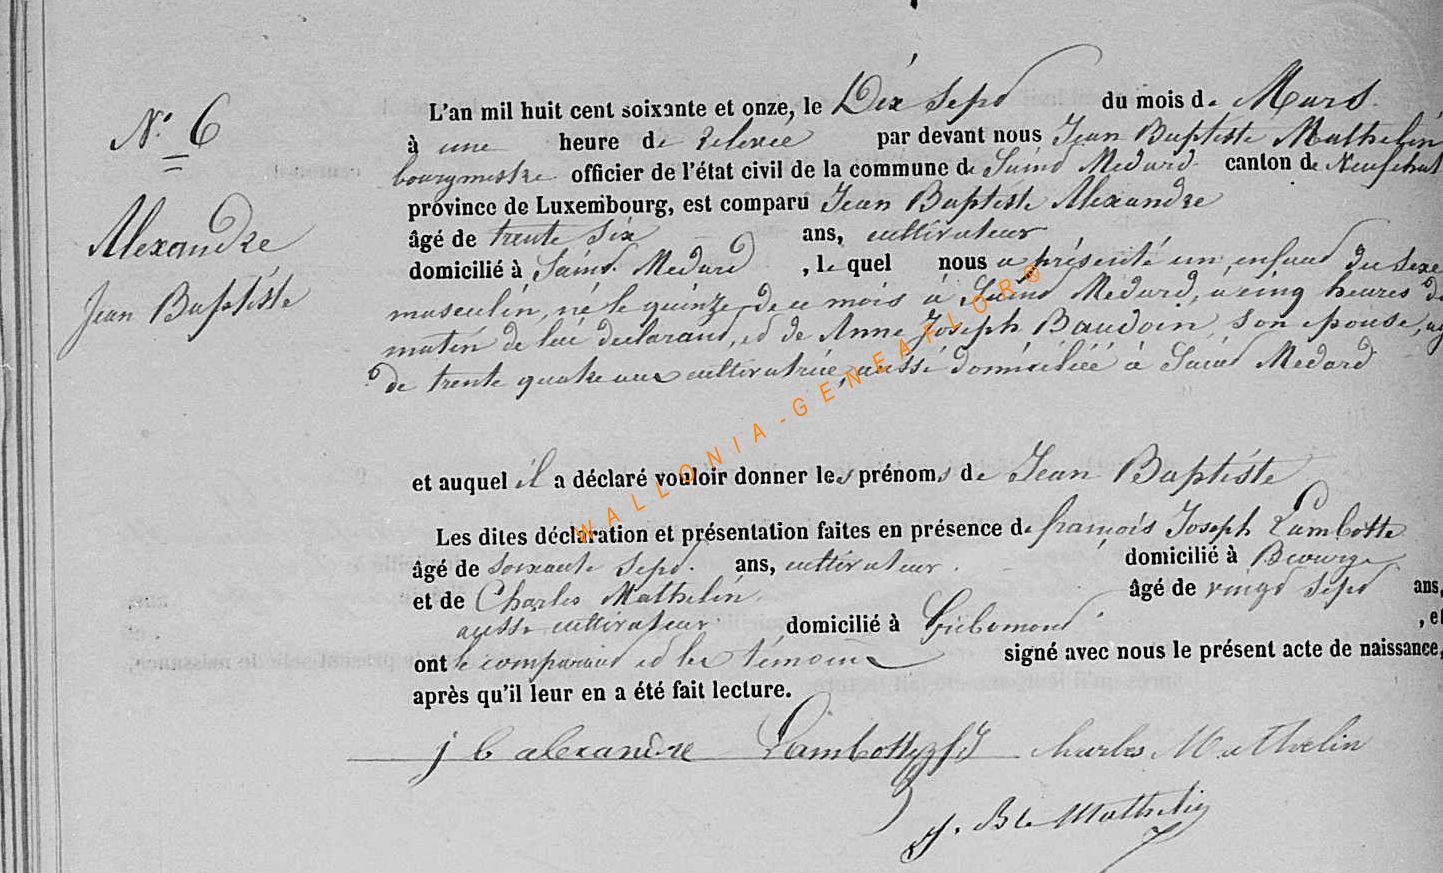 N.° 6
Alexandre
Jean Baptiste
L'an mil huit cent soixante et onze, le Dix Sept du mois de Mars.
à une heure de relevée par devant nous Jean Baptiste Mathelin
bourgmestre officier de l'état civil de la commune de Saint Medard canton de Neufchat
province de Luxembourg, est comparu Jean Baptiste Alexandre
âgé de trente six ans, cultivateur
domicilié à Saint Medard, le quel nous a présenté un enfant du sexe
masculin, né le quinze de ce mois à Saint Medard, a cinq heures du
matin de lui declarant, et de Anne Joseph Baudoin, son epouse, ag
de trente quatre ans cultivatrice, aussi domiciliée à Saint Medard
et auquel il a déclaré vouloir donner les prénoms de Jean Baptiste
Les dites déclaration et présentation faites en présence de françois Joseph Lambotte
âgé de soixante sept ans, cultivateur. domicilié à
et de Charles Mathelin. âgé de vingt sept ans,
aussi cultivateur domicilié à Gribomont, et
ont le comparant et les témoins signé avec nous le présent acte de naissance,
après qu'il leur en a été fait lecture.
j b alexandre Lambotte f J Charles Mathelin
J. Bte Mathelin
WALLONIA-GENEAFLOR®